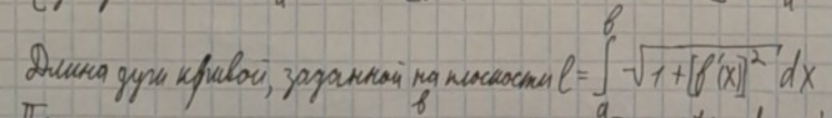 Длина дуги кривой, заданной на плоскости l = ∫ₐᵇ √(1+[f'(x)]²) dx